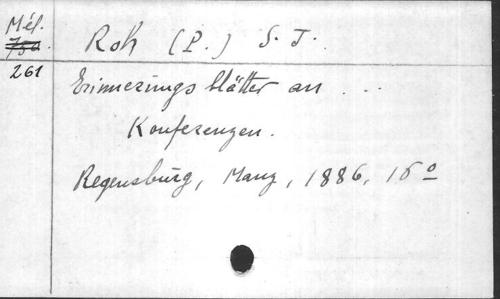 Mél.
261
Roh (P.) S. J.
Erinnerungsblätter an ...
Konferenzen.
Regensburg, Manz, 1886, 16º